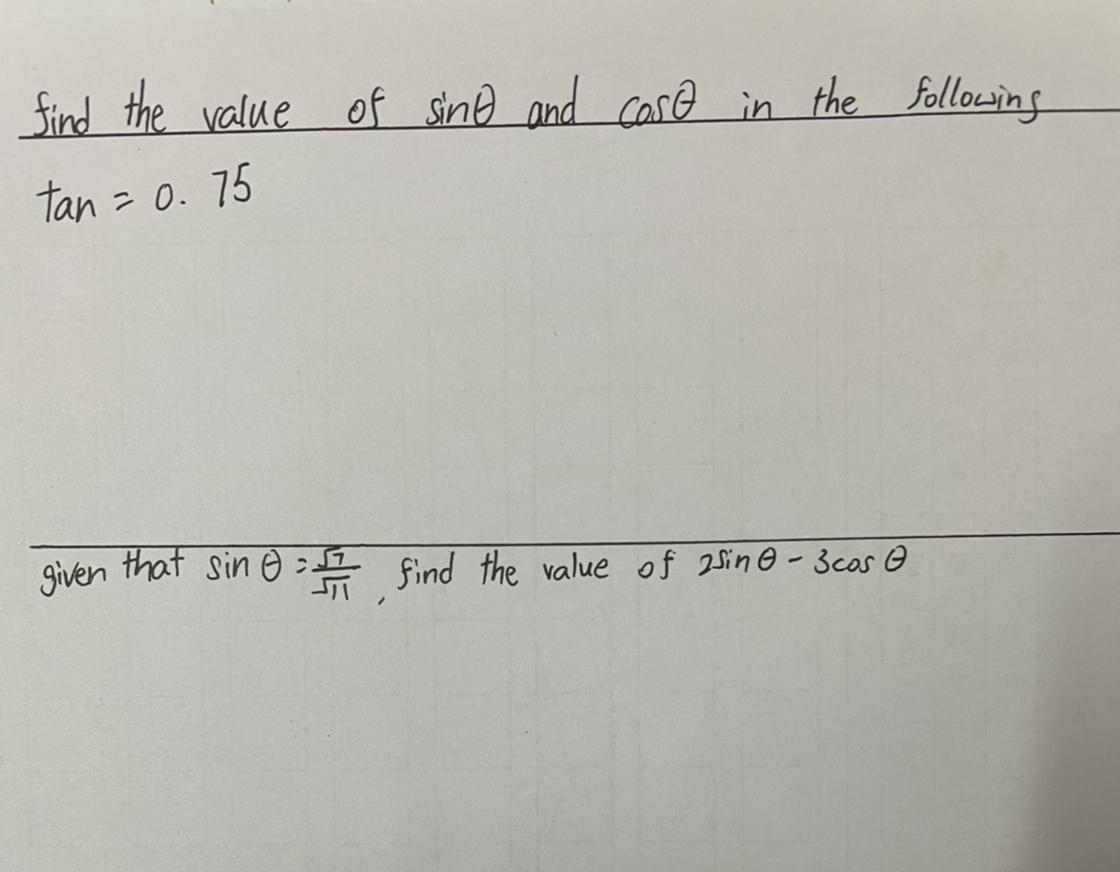 find the value of sinθ and cosθ in the following
tan = 0.75
given that sin θ = √7/√11, find the value of 2sinθ - 3cosθ